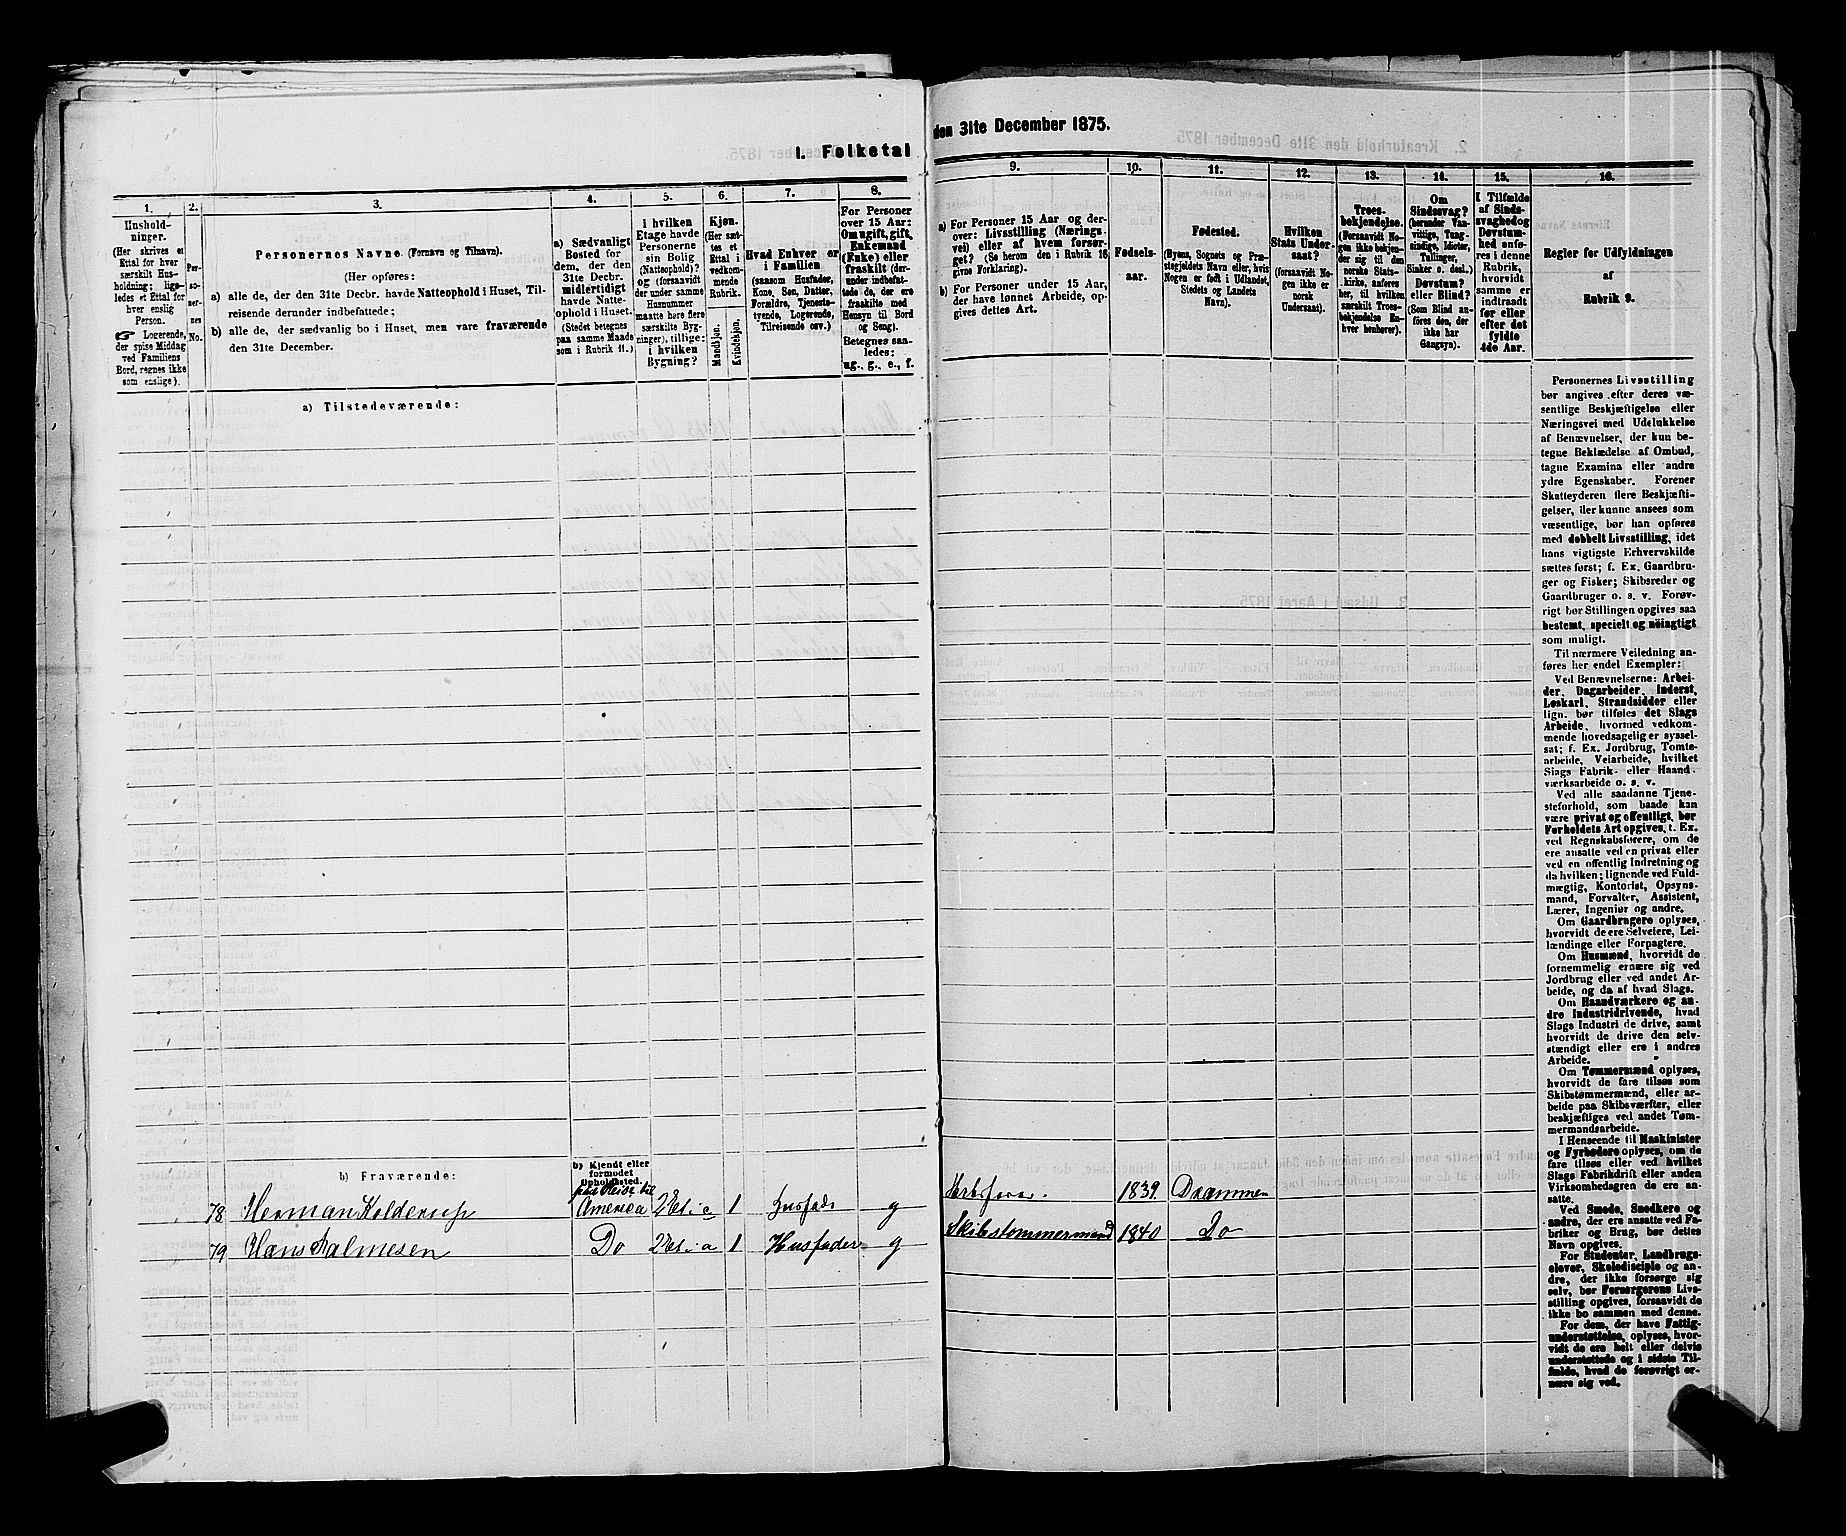 I. Folketal
den 31te December 1875.
1.
Husholdninger.
(Her skrives et
Ettal for hver
særskilt Husholdning;
ligeledes et Ettal for
hver enslig
Person.
Logerende,
der spise Middag
ved Familiens
Bord, regnes ikke
som enslige).
2.
Personernes
No.
3.
Personernes Navne (Fornavn og Tilnavn).
(Her opføres:
a) alle de, der den 31te Decbr. havde Natteophold i Huset, Tilreisende derunder indbefattede;
b) alle de, der sædvanlig bo i Huset, men vare fraværende
den 31te December.
4.
a) Sædvanligt
Bosted for
dem, der den
31te Decbr.
midlertidigt
havde Natteophold i Huset.
(Stedet betegnes
paa samme Maade
som i Rubrik 11.)
5.
I hvilken
Etage havde
Personerne
sin Bolig
(Natteophold)?
og (forsaavidt
der under samme
Husnummer
maatte høre flere
særskilte Bygninger), tillige:
i hvilken
Bygning?
6.
Kjøn.
(Her sættes et
Ettal i
vedkommende
Rubrik.
Mandkjøn.
Kvindekjøn.
7.
Hvad Enhver er
i Familien
(saasom Husfader,
Kone, Søn, Datter,
Forældre, Tjenestetyende, Logerende,
Tilreisende osv.)
8.
For Personer
over 15 Aar:
Om ugift, gift,
Enkemand
(Enke) eller
fraskilt (derunder indbefattede de, der ere
fraskilte med
Hensyn til Bord
og Seng).
Betegnes saaledes:
ug., g., e., f.
9.
a) For Personer 15 Aar og derover: Livsstilling (Næringsvei) eller af hvem forsørget? (Se herom den i Rubrik 16
givne Forklaring).
b) For Personer under 15 Aar,
der have lønnet Arbeide, opgives dettes Art.
10.
Fødselsaar.
11.
Fødested.
(Byens, Sognets og Præstegjeldets Navn eller, hvis
Nogen er født i Udlandet,
Stedets og Landets
Navn).
12.
Hvilken
Stats Undersaat?
(forsaavidt Nogen ikke er
norsk
Undersaat).
13.
Troesbekjendelse.
(Forsaavidt Nogen ikke bekjender sig til den
norske Statskirke, anføres
her, til hvilken
særskilt Troesbekjendelse Enhver henhører).
14.
Om
Sindssvag?
(herunder Vanvittige, Tungsindige, Idioter,
Tullinger,
Sinker o. desl.)
Døvstum?
eller Blind?
(Som Blind anføres den, der
ikke har
Gangsyn).
15.
I Tilfælde
af Sindssvaghed og
Døvstumhed anføres i denne
Rubrik,
hvorvidt
samme er
indtraadt
før eller
efter det
fyldte
4de Aar.
16.
Regler for Udfyldningen
af
Rubrik 9.
a) Tilstedeværende:
Personernes Livsstilling
bør angives efter deres væsentlige Beskjæftigelse eller
Næringsvei med Udelukkelse
af Benævnelser, der kun betegne Beklædelse af Ombud,
tagne Examina eller andre
ydre Egenskaber. Forener
Skatteyderen flere Beskjæftigelser, der kunne ansees som
væsentlige, bør han opføres
med dobbelt Livsstilling, idet
hans vigtigste Erhvervskilde
sættes først; f. Ex. Gaardbruger og Fisker; Skibsreder og
Gaardbruger o. s. v. Forøvrigt bør Stillingen opgives saa
bestemt, specielt og nøiagtigt
som muligt.
Til nærmere Veiledning anføres her endel Exempler:
Ved Benævnelserne: Arbeider, Dagarbeider, Inderst,
Løskarl, Strandsidder eller
lign. bør tilføies det Slags
Arbeide, hvormed vedkommende hovedsagelig er sysselsat; f. Ex. Jordbrug, Tomtearbeide, Veiarbeide, hvilket
Slags Fabrik- eller Haandværksarbeide o. s. v.
Ved alle saadanne Tjenesteforhold, som baade kan
være privat og offentligt, bør
Forholdets Art opgives, t. Ex.
ved Regnskabsførere, om de
ere ansatte ved en privat eller
ved en offentlig Indretning og
da hvilken; lignende ved Fuldmægtig, Kontorist, Opsynsmand, Forvalter, Assistent,
Lærer, Ingeniør og andre.
Om Gaardbrugere oplyses,
hvorvidt de ere Selveiere, Leilændinge eller Forpagtere.
Om Husmænd, hvorvidt de
fornemmelig ernære sig ved
Jordbrug eller ved andet Arbeide, og da af hvad Slags.
Om Haandværkere og andre Industridrivende, hvad
Slags Industri de drive, samt
hvorvidt de drive den selvstændigt eller ere i andres
Arbeide.
Om Tømmermænd oplyses,
hvorvidt de fare tilsøs som
Skibstømmermænd, eller arbeide paa Skibsværfter, eller
beskjæftiges ved andet Tømmermandsarbeide.
I Henseende til Maskinister
og Fyrbødere oplyses, om de
fare tilsøs eller ved hvilket
Slags Fabrikdrift eller anden
Virksomhed de ere ansatte.
Ved Smede, Snedkere og
andre, der ere ansatte ved Fabriker og Brug, bør dettes
Navn opgives.
For Studenter, Landbrugselever, Skoledisciple og andre, der ikke forsørge sig
selv, bør Forsørgerens Livsstilling opgives, forsaavidt de
ikke bo sammen med denne.
For dem, der have Fattigunderstøttelse, oplyses, hvorvidt de ere helt eller delvis
understøttede og i sidste Tilfælde, hvad de forøvrigt ernære sig ved.
b) Fraværende:
b) Kjendt eller
formodet
Opholdssted.
78 Herman Kolderup paa Reise til America 2 Et. i c 1 Husfader g 1839. Drammen
79 Hans Halmesen Do 2 Et. i a 1 Husfader g Skibstømmermand 1840 Do